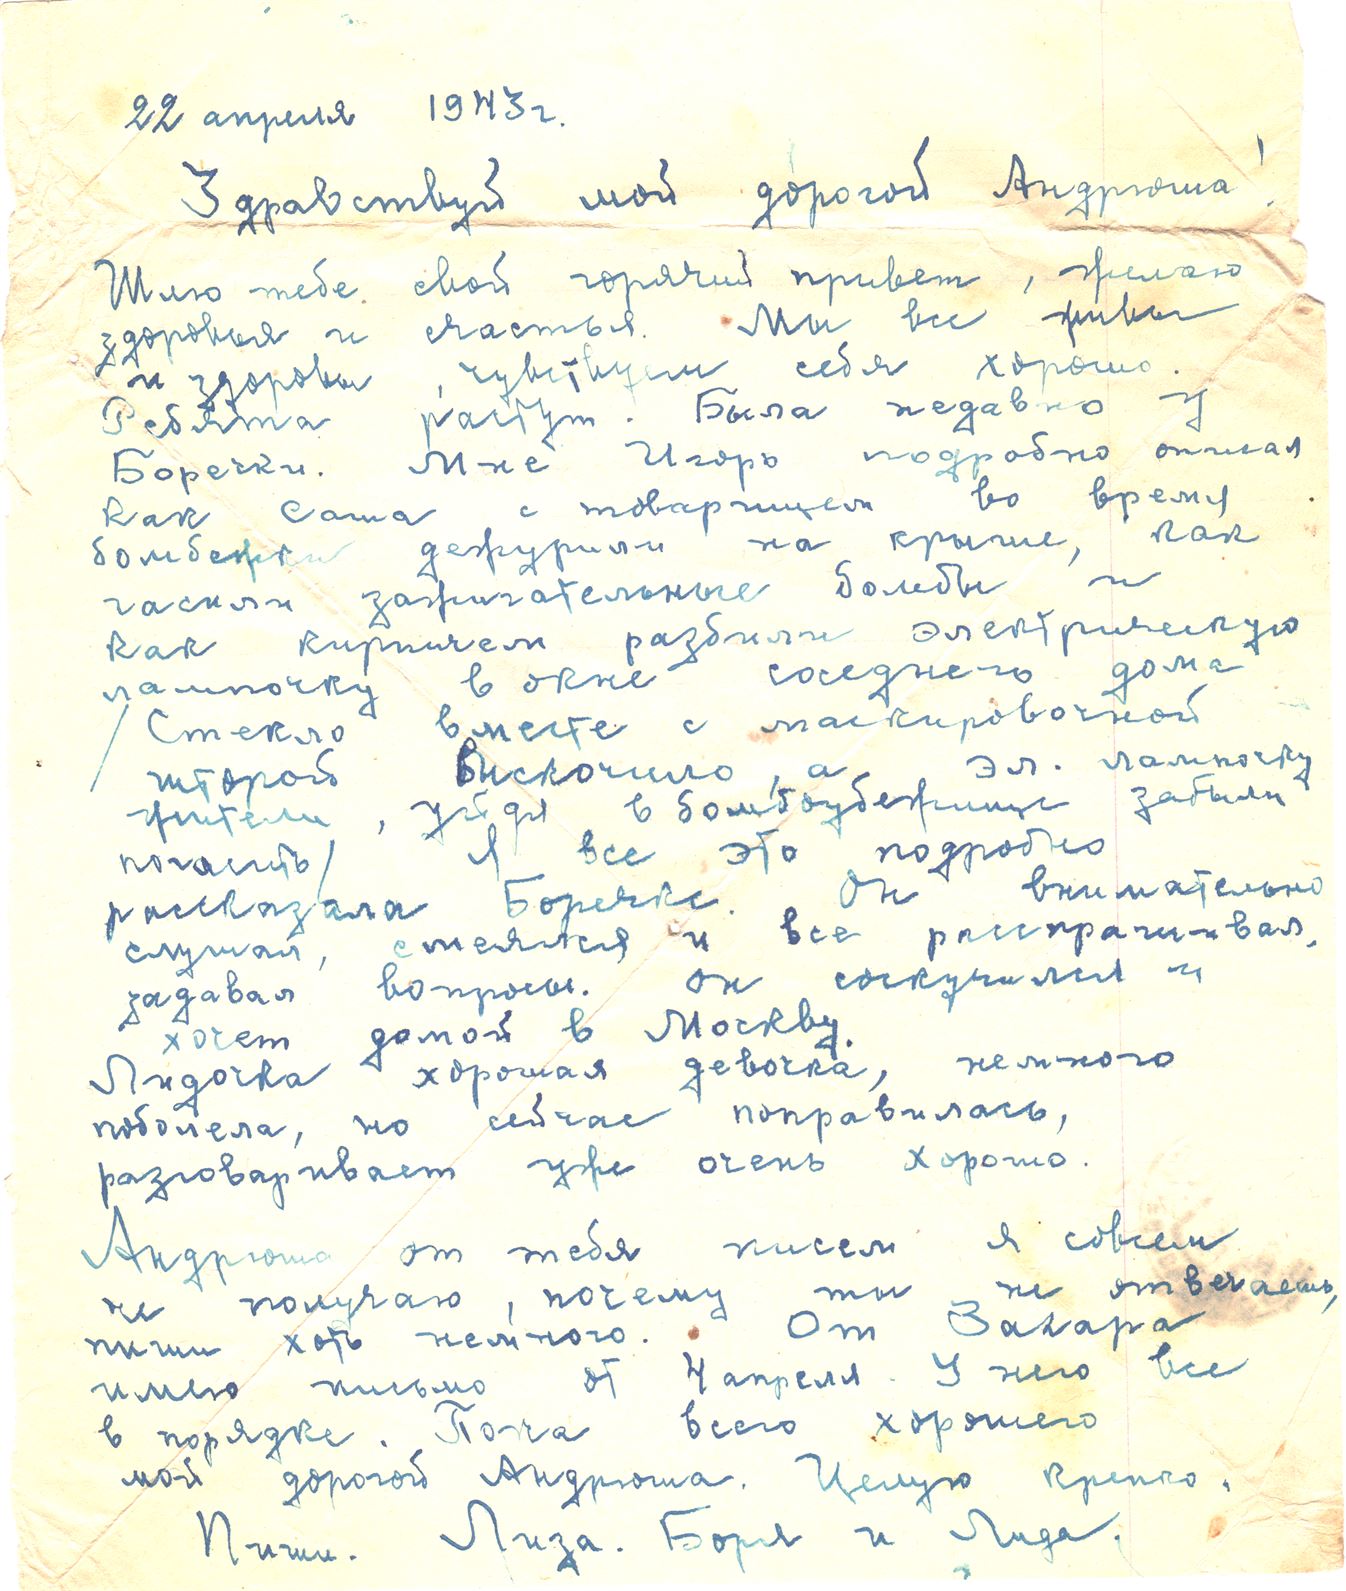 22 апреля 1943г.
Здравствуй мой дорогой Андрюша!
Шлю тебе свой горячий привет, желаю
здоровья и счастья. Мы все живы
и здоровы, чувствуем себя хорошо.
Ребята растут. Была недавно у
Боречки. Мне Игорь подробно описал
как Саша с товарищем во время
бомбежки дежурили на крыше, как
гасили зажигательные бомбы и
как кирпичем разбили электрическую
лампочку в окне соседнего дома
/Стекло вместе с маскировочной
шторой выскочило, а эл. лампочку
жители, уйдя в бомбоубежище забыли
погасить/ Я все это подробно
рассказала Боречке. Он внимательно
слушал, смеялся и все расспрашивал,
задавал вопросы. Он соскучился и
хочет домой в Москву.
Лидочка хорошая девочка, немного
поболела, но сейчас поправилась,
разговаривает уже очень хорошо.
Андрюша от тебя писем я совсем
не получаю, почему ты не отвечаешь,
пиши хоть немного. От Захара
имею письмо от 4 апреля. У него все
в порядке. Пока всего хорошего
мой дорогой Андрюша. Целую крепко.
Пиши. Лиза. Боря и Лида.